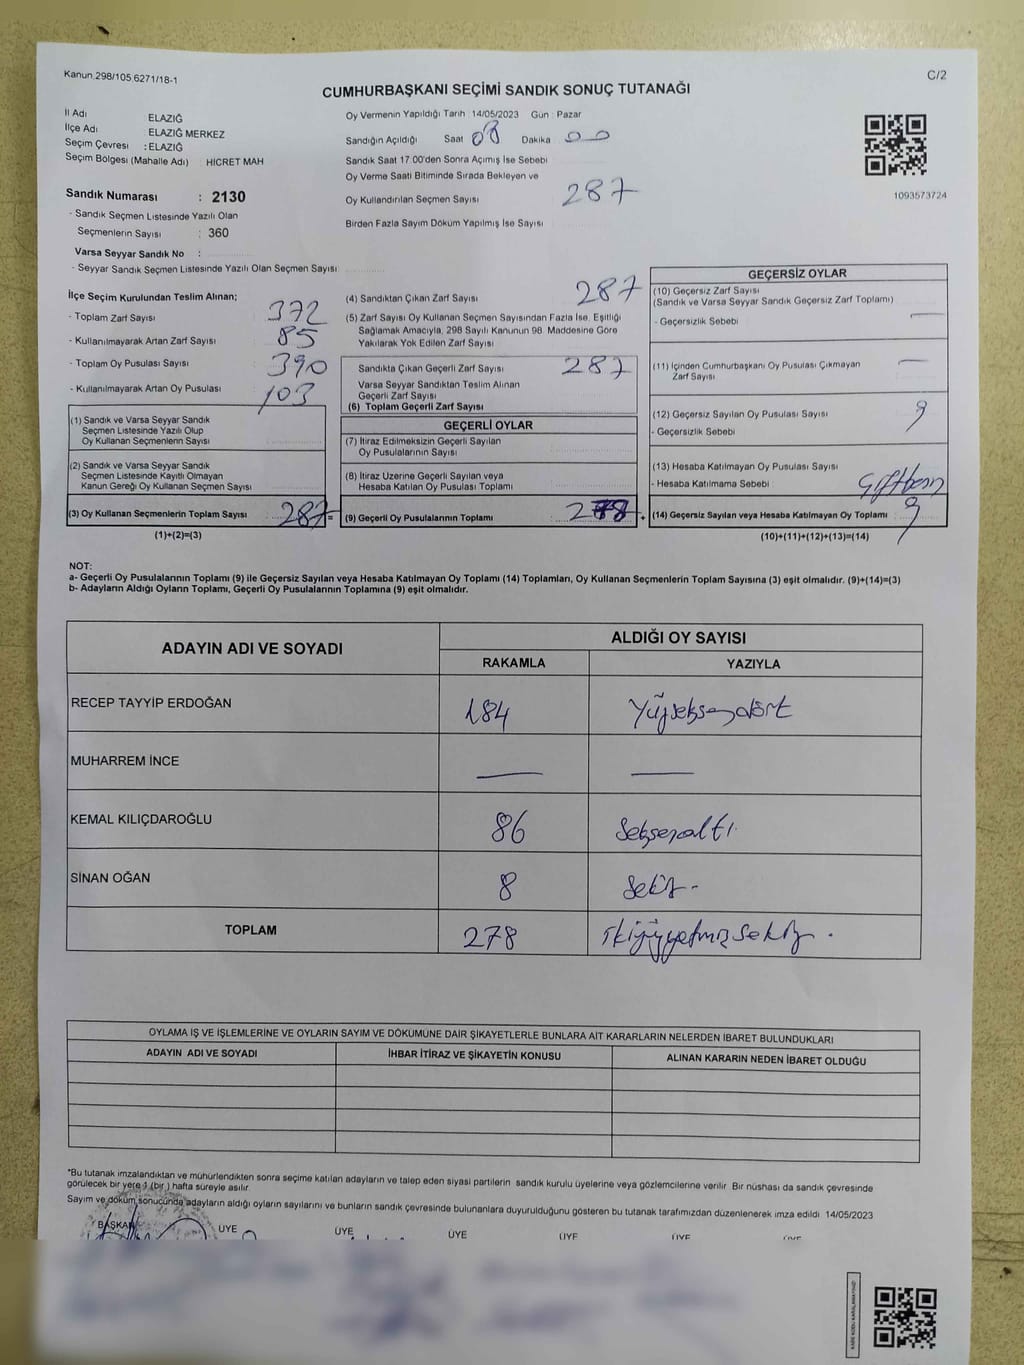 Kanun.298/105.6271/18-1
C/2
CUMHURBAŞKANI SEÇİMİ SANDIK SONUÇ TUTANAĞI
İl Adı ELAZIĞ
İlçe Adı ELAZIĞ MERKEZ
Seçim Çevresi : ELAZIĞ
Seçim Bölgesi (Mahalle Adı) : HİCRET MAH
Oy Vermenin Yapıldığı Tarih 14/05/2023 Gün Pazar
Sandığın Açıldığı Saat 08 Dakika 00
Sandık Saat 17 00'den Sonra Açımış İse Sebebi
Oy Verme Saati Bitiminde Sırada Bekleyen ve
Oy Kullandırılan Seçmen Sayısı 287
Birden Fazla Sayım Döküm Yapılmış İse Sayısı
1093573724
Sandık Numarası : 2130
- Sandık Seçmen Listesinde Yazılı Olan
Seçmenlerin Sayısı : 360
Varsa Seyyar Sandık No :
- Seyyar Sandık Seçmen Listesinde Yazılı Olan Seçmen Sayısı
İlçe Seçim Kurulundan Teslim Alınan;
- Toplam Zarf Sayısı 372
- Kullanılmayarak Artan Zarf Sayısı 85
- Toplam Oy Pusulası Sayısı 390
- Kullanılmayarak Artan Oy Pusulası 103
(1) Sandık ve Varsa Seyyar Sandık
Seçmen Listesinde Yazılı Olup
Oy Kullanan Seçmenlerin Sayısı
(2) Sandık ve Varsa Seyyar Sandık
Seçmen Listesinde Kayıtlı Olmayan
Kanun Gereği Oy Kullanan Seçmen Sayısı
(3) Oy Kullanan Seçmenlerin Toplam Sayısı 287 =
(1)+(2)=(3)
(4) Sandıktan Çıkan Zarf Sayısı 287
(5) Zarf Sayısı Oy Kullanan Seçmen Sayısından Fazla İse, Eşitliği
Sağlamak Amacıyla, 298 Sayılı Kanunun 98. Maddesine Göre
Yakılarak Yok Edilen Zarf Sayısı
Sandıkta Çıkan Geçerli Zarf Sayısı 287
Varsa Seyyar Sandıktan Teslim Alınan
Geçerli Zarf Sayısı
(6) Toplam Geçerli Zarf Sayısı
GEÇERLİ OYLAR
(7) İtiraz Edilmeksizin Geçerli Sayılan
Oy Pusulalarının Sayısı
(8) İtiraz Üzerine Geçerli Sayılan veya
Hesaba Katılan Oy Pusulası Toplamı
(9) Geçerli Oy Pusulalarının Toplamı 278 +
GEÇERSİZ OYLAR
(10) Geçersiz Zarf Sayısı
(Sandık ve Varsa Seyyar Sandık Geçersiz Zarf Toplamı)
- Geçersizlik Sebebi —
(11) İçinden Cumhurbaşkanı Oy Pusulası Çıkmayan —
Zarf Sayısı
(12) Geçersiz Sayılan Oy Pusulası Sayısı 9
- Geçersizlik Sebebi
(13) Hesaba Katılmayan Oy Pusulası Sayısı
- Hesaba Katılmama Sebebi
(14) Geçersiz Sayılan veya Hesaba Katılmayan Oy Toplamı 9
(10)+(11)+(12)+(13)=(14)
NOT:
a- Geçerli Oy Pusulalarının Toplamı (9) ile Geçersiz Sayılan veya Hesaba Katılmayan Oy Toplamı (14) Toplamları, Oy Kullanan Seçmenlerin Toplam Sayısına (3) eşit olmalıdır. (9)+(14)=(3)
b- Adayların Aldığı Oyların Toplamı, Geçerli Oy Pusulalarının Toplamına (9) eşit olmalıdır.
ADAYIN ADI VE SOYADI ALDIĞI OY SAYISI
RAKAMLA YAZIYLA
RECEP TAYYİP ERDOĞAN 184 Yüzseksendört
MUHARREM İNCE — —
KEMAL KILIÇDAROĞLU 86 Seksenaltı
SİNAN OĞAN 8 Sekiz
TOPLAM 278 ikiyüzyetmişsekiz
OYLAMA İŞ VE İŞLEMLERİNE VE OYLARIN SAYIM VE DÖKÜMÜNE DAİR ŞİKAYETLERLE BUNLARA AİT KARARLARIN NELERDEN İBARET BULUNDUKLARI
ADAYIN ADI VE SOYADI İHBAR İTİRAZ VE ŞİKAYETİN KONUSU ALINAN KARARIN NEDEN İBARET OLDUĞU
*Bu tutanak imzalandıktan ve mühürlendikten sonra seçime katılan adayların ve talep eden siyasi partilerin sandık kurulu üyelerine veya gözlemcilerine verilir. Bir nüshası da sandık çevresinde
görülecek bir yere 1 (bir ) hafta süreyle asılır.
Sayım ve döküm sonucunda adayların aldığı oyların sayılarını ve bunların sandık çevresinde bulunanlara duyurulduğunu gösteren bu tutanak tarafımızdan düzenlenerek imza edildi. 14/05/2023
BAŞKAN ÜYE ÜYE ÜYE ÜYE ÜYE ÜYE